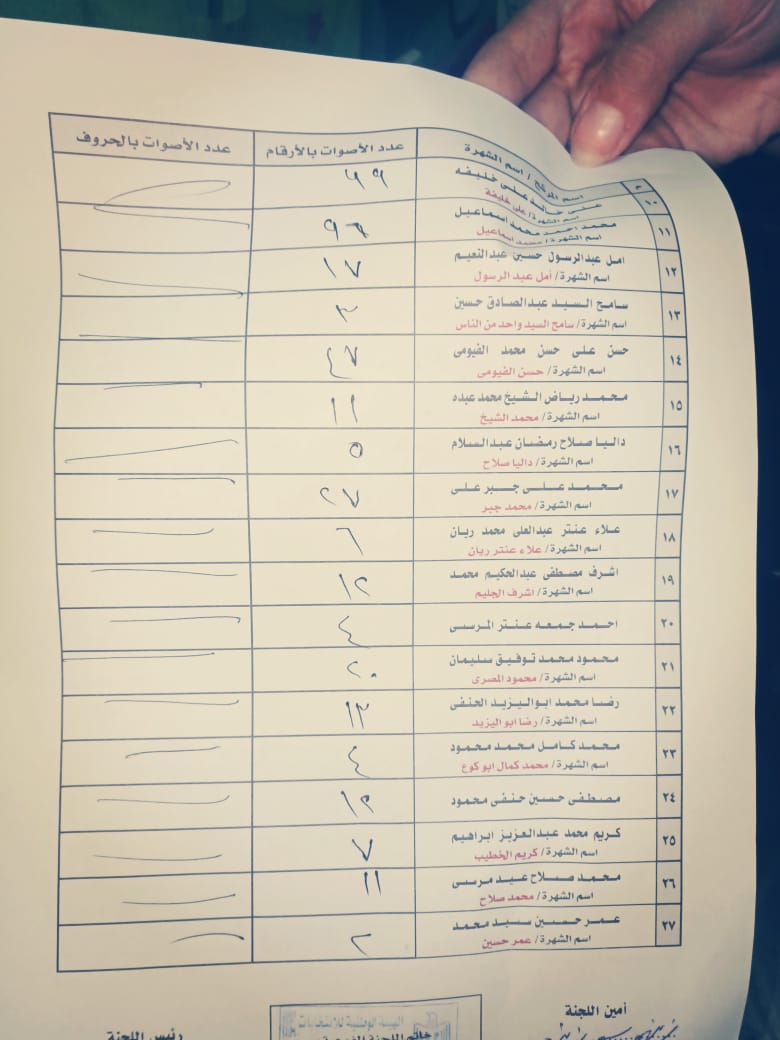 م اسم المرشح / اسم الشهرة عدد الأصوات بالأرقام عدد الأصوات بالحروف
١٠ على خالد على خليفه ٩٩
اسم الشهرة/ على خليفة
١١ محمد احمد محمد اسماعيل
اسم الشهرة/ محمد اسماعيل
١٢ امل عبدالرسول حسين عبدالنعيم ١٧
اسم الشهرة/ أمل عبد الرسول
١٣ سامح السيد عبدالصادق حسين ٣
اسم الشهرة/ سامح السيد واحد من الناس
١٤ حسن على حسن محمد الفيومى ٤٧
اسم الشهرة/ حسن الفيومى
١٥ محمد رياض الشيخ محمد عبده ١١
اسم الشهرة/ محمد الشيخ
١٦ داليا صلاح رمضان عبدالسلام ٥
اسم الشهرة/ داليا صلاح
١٧ محمد على جبر على ٢٧
اسم الشهرة/ محمد جبر
١٨ علاء عنتر عبدالعلى محمد ريان ٦
اسم الشهرة/ علاء عنتر ريان
١٩ اشرف مصطفى عبدالحكيم محمد ١٢
اسم الشهرة/ اشرف الجليم
٢٠ احمد جمعه عنتر المرسى ٤
٢١ محمود محمد توفيق سليمان ٢٠
اسم الشهرة/ محمود المصرى
٢٢ رضا محمد ابواليزيد الحنفى ١٣
اسم الشهرة/ رضا ابو اليزيد
٢٣ محمد كامل محمد محمود ٤
اسم الشهرة/ محمد كمال ابو كوع
٢٤ مصطفى حسين حنفى محمود ١٢
٢٥ كريم محمد عبدالعزيز ابراهيم ٧
اسم الشهرة/ كريم الخطيب
٢٦ محمد صلاح عيد مرسى ١١
اسم الشهرة/ محمد صلاح
٢٧ عمر حسين سيد محمد ٢
اسم الشهرة/ عمر حسين
أمين اللجنة
الهيئة الوطنية للانتخابات
خاتم اللجنة الفرعية
رئيس اللجنة